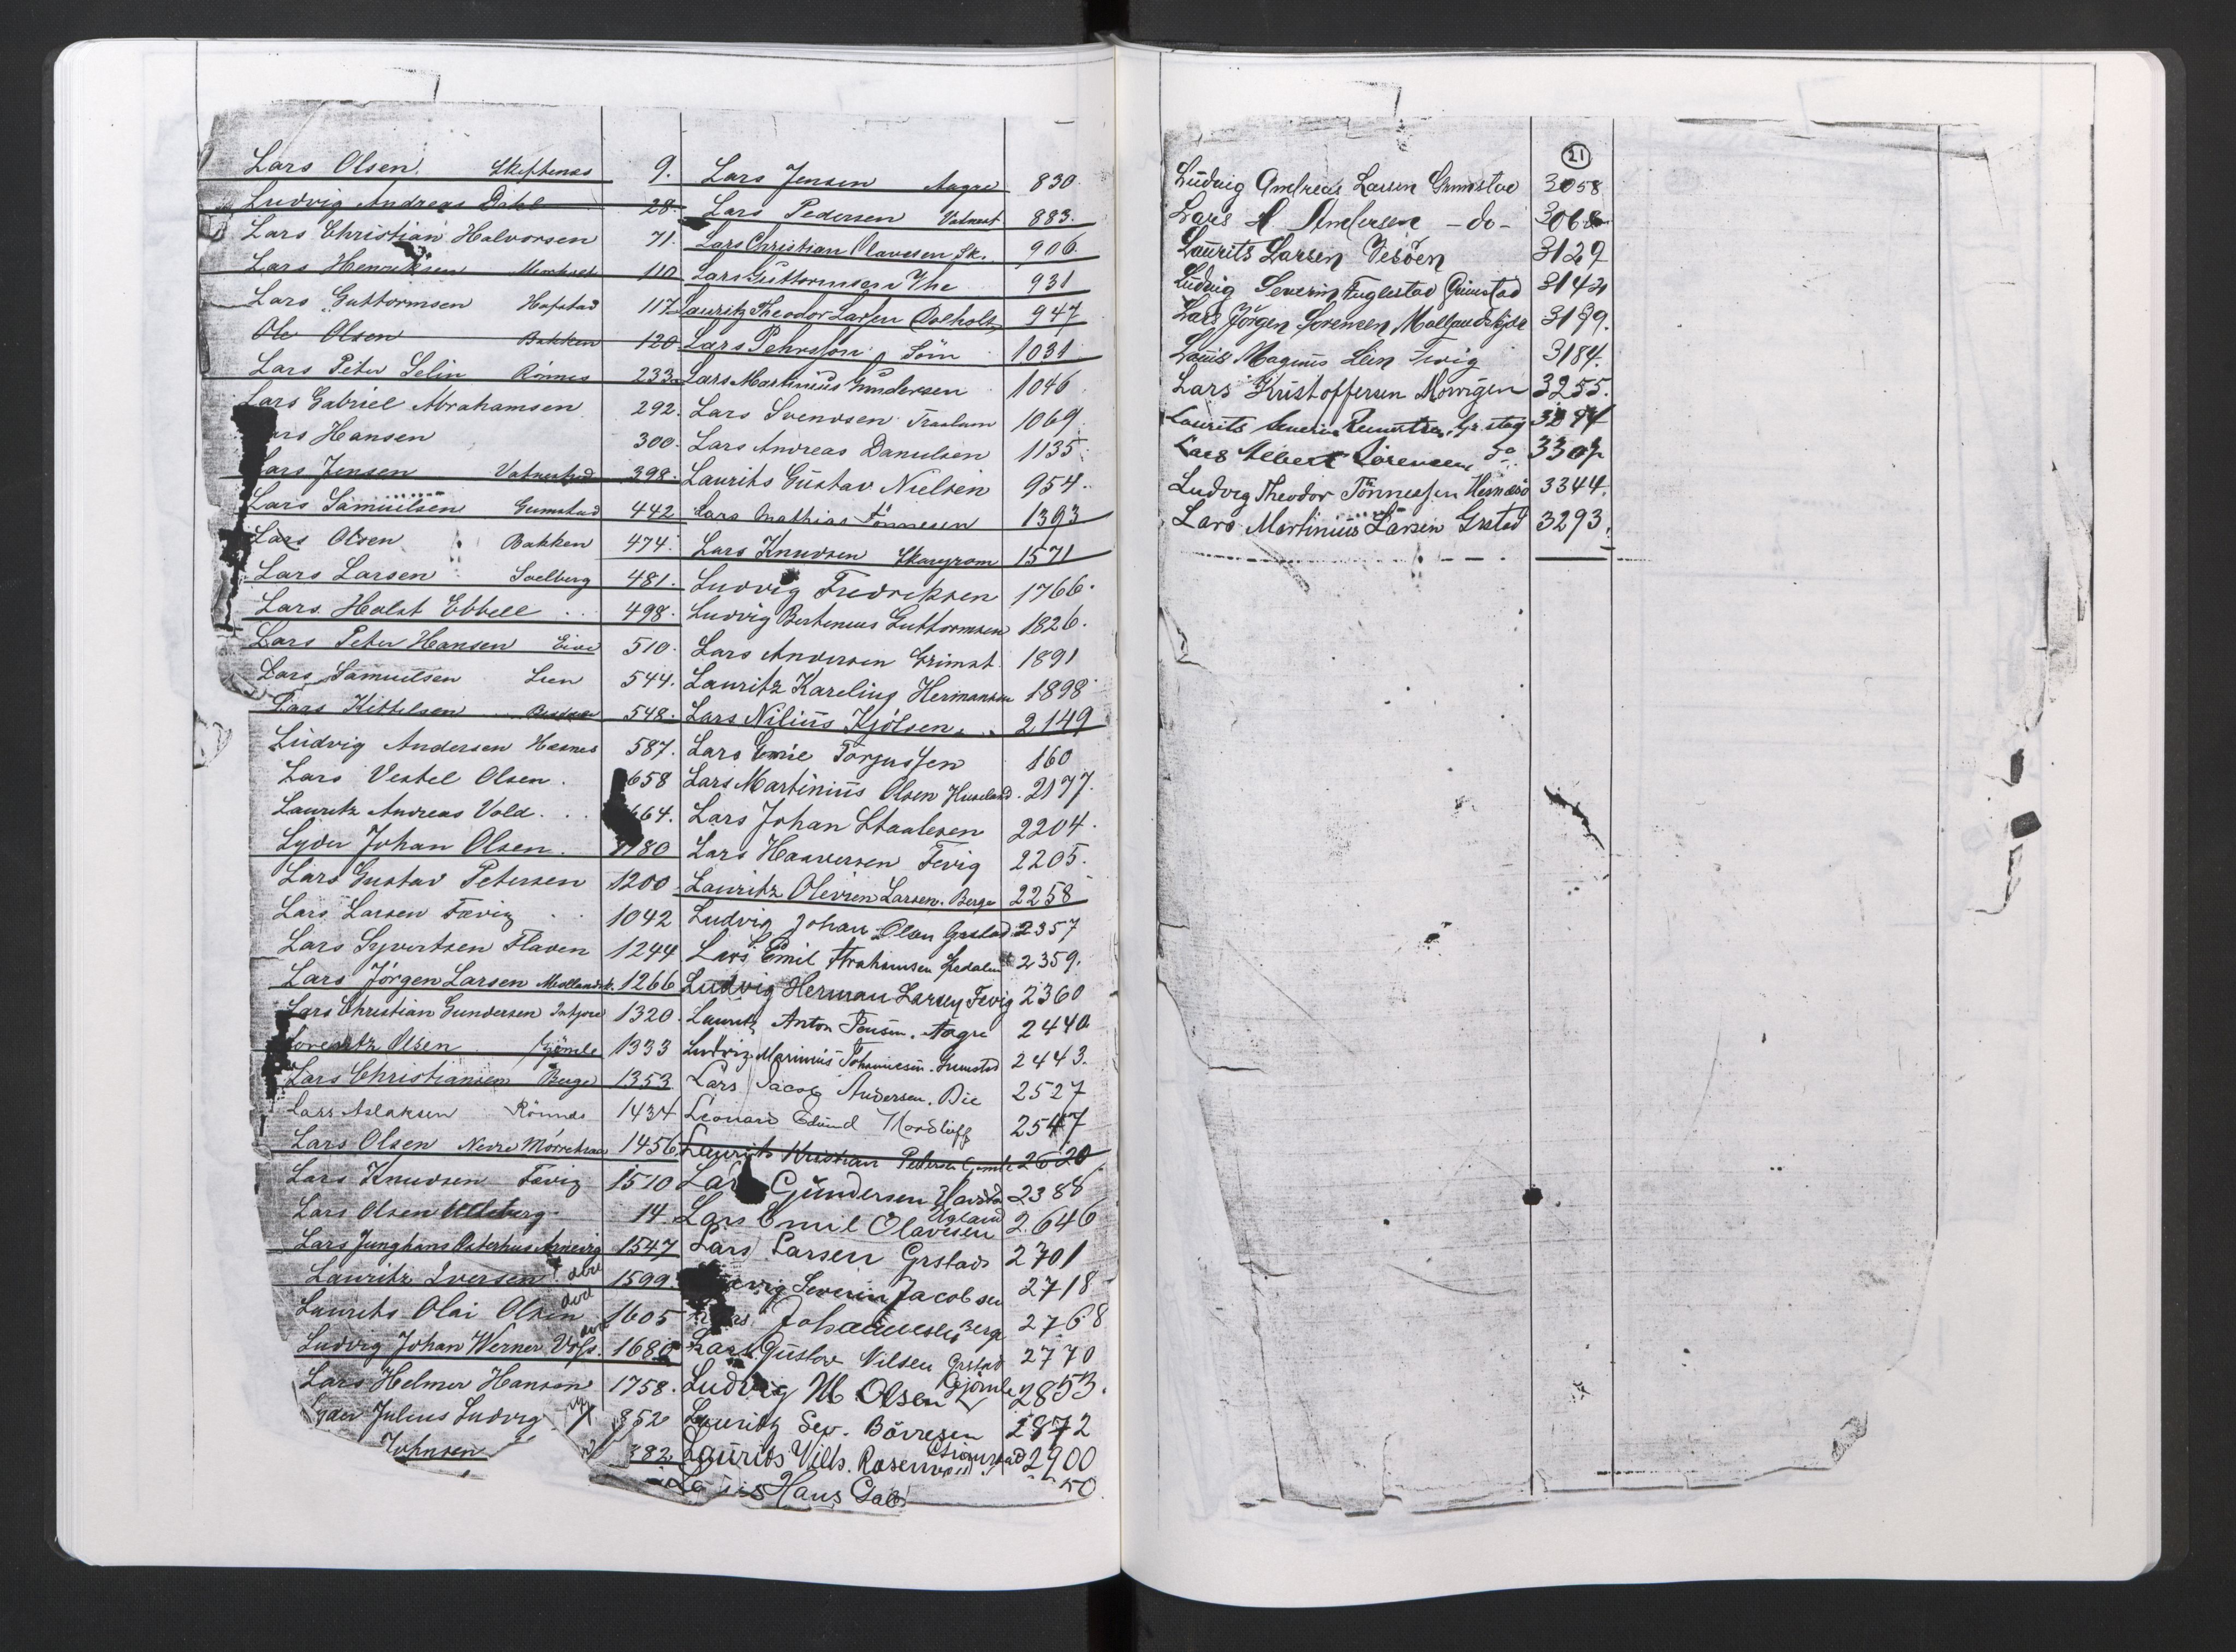 Lars Olsen. Skiftenes 9.
Ludvig Andreas Dahl 28.
Lars Christian Halvorsen 71.
Lars Henriksen 110
Lars Guttormsen Hafstad 117
Ole Olsen Bakken 120
Lars Peter Selin Rönnes 233
Lars Gabriel Abrahamsen 292.
Lars Hansen 300.
Lars Jensen 398.
Lars Samuelsen Grimstad 442
Lars Olsen Bakken 474.
Lars Larsen Soelberg 481.
Lars Holst Ebbell 498.
Lars Peter Hansen Eide 510.
Lars Samuelsen Lien 544.
Lars Kittelsen 548.
Ludvig Andersen Hasnes 587.
Lars Vestel Olsen. 658
Lauritz Andreas Vold. 664.
Lyder Johan Olsen. 1180
Lars Gustav Petersen 1200
Lars Larsen Fævig 1042
Lars Syvertsen Flaven 1244
Lars Jörgen Larsen Mollandsk. 1266
Lars Christian Gundersen 1320.
Lorentz Olsen Gjömle 1333
Lars Christiansen Berge 1353
Lars Aslaksen Rönnes 1434
Lars Olsen Nedre 1456
Lars Knudsen Fævig 1510
Lars Olsen Ulleberg 14.
Lars Junghans Osterhus Arnevig 1547
Lauritz Iversen død 1599.
Laurits Olai Olsen død 1605
Ludvig Johan Werner Voss. død 1688
Lars Helmer Hansen 1758.
Lyder Julius Ludvig 852
Johnsen 382
Lars Jensen Aagre 830.
Lars Pedersen 883.
Lars Christian Olavesen Sk. 906
Lars Guttormsen Vhe 931
Lauritz Theodor Larsen 947
Lars Pehrsson Söm 1031
Lars Martinius Gundersen 1046
Lars Svendsen Traalum 1069
Lars Andreas Danielsen 1135
Laurits Gustav Nielsen 954.
Lars Mathias Tönnesen 1393
Lars Knudsen 1571
Ludvig Fredriksen 1766.
Ludvig Guttormsen 1826.
Lars Andersen Grimst. 1891
Lauritz Karelius Hermansen 1898
Lars Nilius Kjölsen. 2149
Lars Emil Torjussen 160
Lars Martinius Olsen Huseland. 2177.
Lars Johan Staalesen 2204.
Lars Haaversen Fevig 2205.
Lauritz Olevsen Larsen. Berge 2258
Ludvig Johan Olsen Grstad 2357
Lars Emil Abrahamsen 2359.
Ludvig Herman Larsen Fevig 2360
Lauritz Anton Jensen. Aagre 2440
Ludvig Marinius Johannesen. Grimstad 2443.
Lars Jacob Andersen. Bie 2527
Leonard Edvind Nordloff 2547
Laurits Kristian Pedersen 2620
Lars Gundersen 2388
Lars Emil Olavesen Ugland 2646
Lars Larsen Grstad 2701
Severin Jacobsen 2718
Johannesen Berge 2768
Lars Gustav Nilsen Grstad 2770
Ludvig M. Olsen Gjömle 2853.
Lauritz Sev. Börresen 2872
Laurits Vilh. Grimstad 2900
Hans 50.
21
Ludvig Andreas Larsen Grimstad 3058
Lars A Andersen - do - 3068
Laurits Larsen Vesöen 3129
Ludvig Severin Fuglestad Grimstad 3142
Lars Jörgen Sörensen Mollandskjær 3179.
Louis Magnus Fevig 3184.
Lars Kristoffersen Morvigen 3255.
Laurits Severin Gr.stad
Lars Albert Sörensen do 3307
Ludvig Theodor Tönnessen Hesnæsö 3344.
Lars Martinius Larsen Grstad 3293.